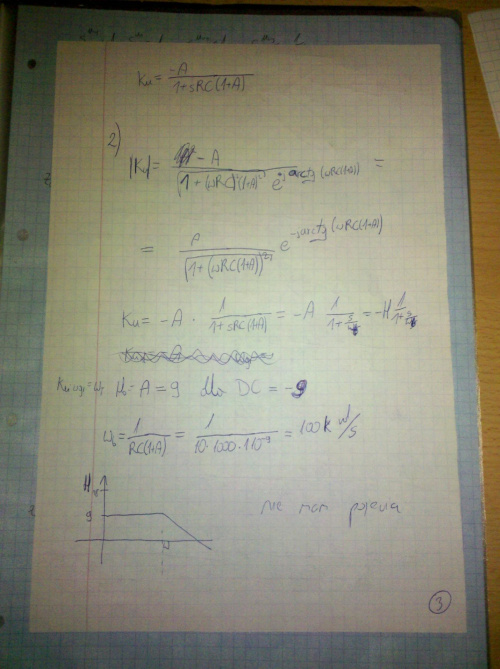 Ku = -A / (1+sRC(1+A))
2)
|Ku| = -A / (√(1+(ωRC)²(1+A)²) e^(j arctg(ωRC(1+A)))) =
= A / √(1+(ωRC(1+A))²) e^(-j arctg(ωRC(1+A)))
Ku = -A · 1 / (1+sRC(1+A)) = -A 1 / (1+ s/ω) = -H 1 / (1+ s/ω)
H₀ = A = 9 dla DC = -9
ω₀ = 1 / (RC(1+A)) = 1 / (10·1000·1·10⁻⁹) = 100k rad/s
H
9
ω
nie mam pojęcia
3